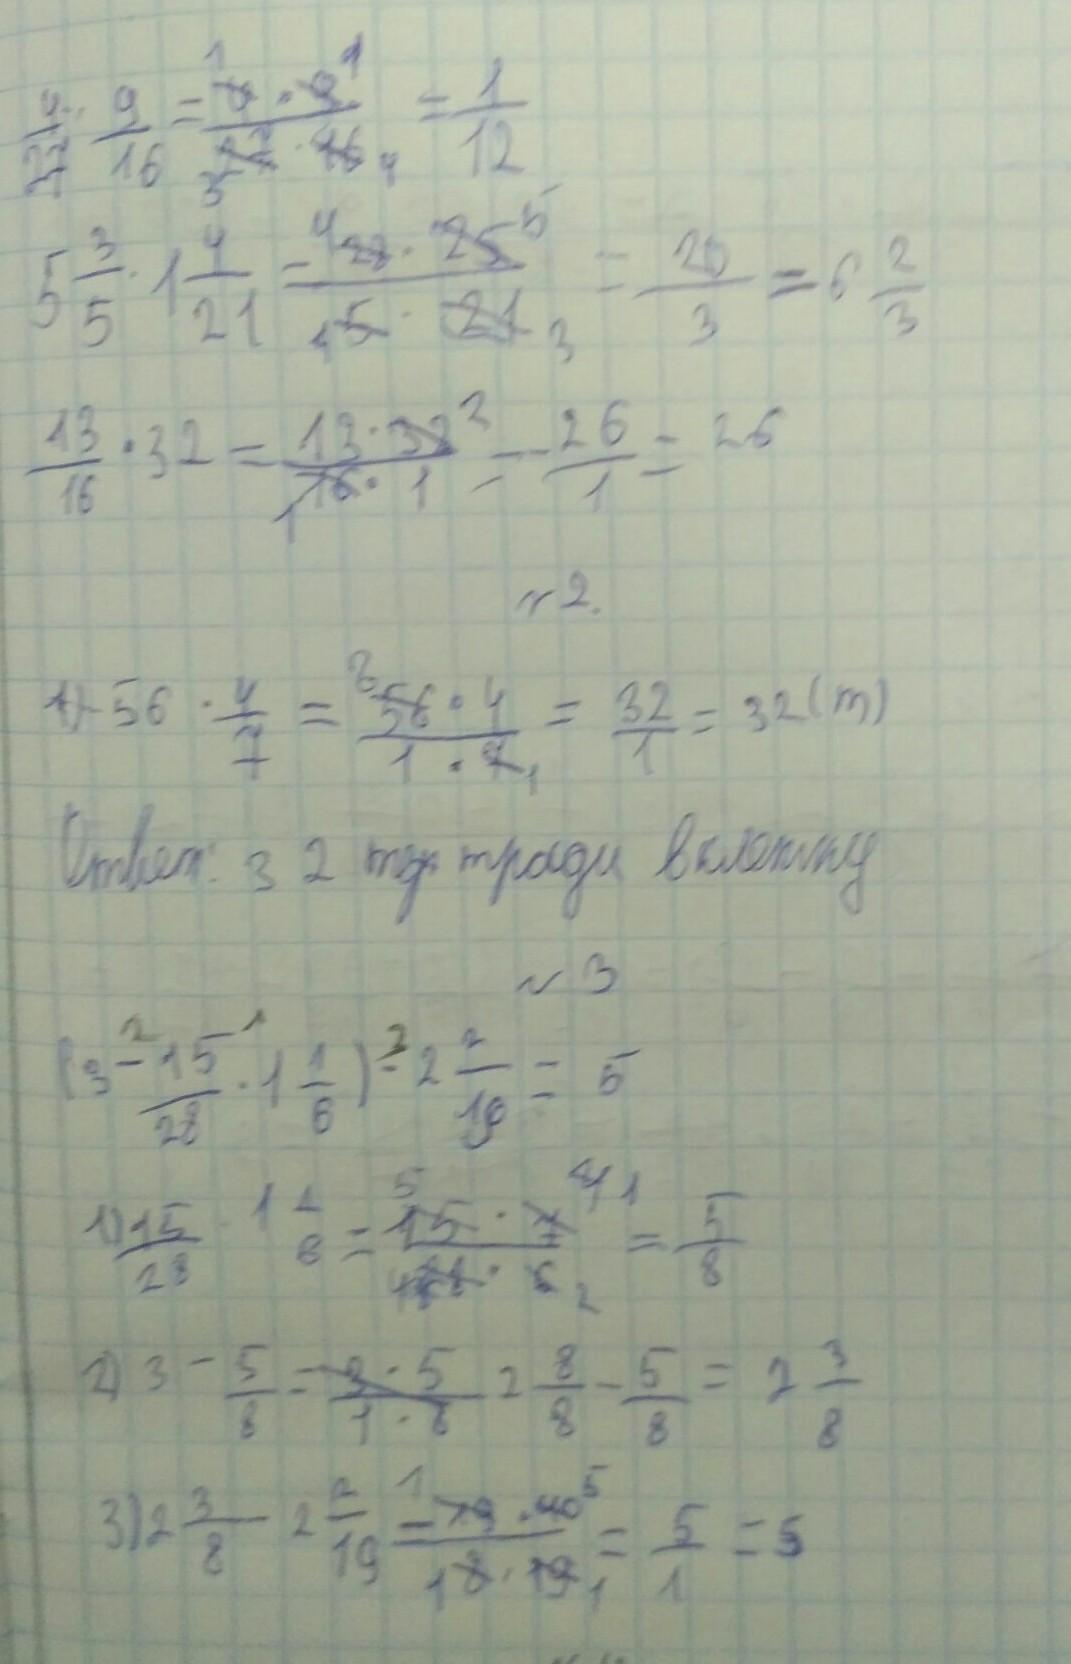 4/27 · 9/16 = 4 · 9 / 27 · 16 = 1/12
5 3/5 · 1 4/21 = 28 · 25 / 5 · 21 = 20/3 = 6 2/3
13/16 · 32 = 13 · 32 / 16 · 1 = 26/1 = 26
№2.
1) 56 · 4/7 = 56 · 4 / 1 · 7 = 32/1 = 32 (т)
Ответ: 32 тетради в клетку
№3
(3 - 15/28 · 1 1/6) · 2 2/19 = 5
1) 15/28 · 1 1/6 = 15 · 7 / 28 · 6 = 5/8
2) 3 - 5/8 = 2 8/8 - 5/8 = 2 3/8
3) 2 3/8 - 2 2/19 = 19 · 40 / 8 · 19 = 5/1 = 5